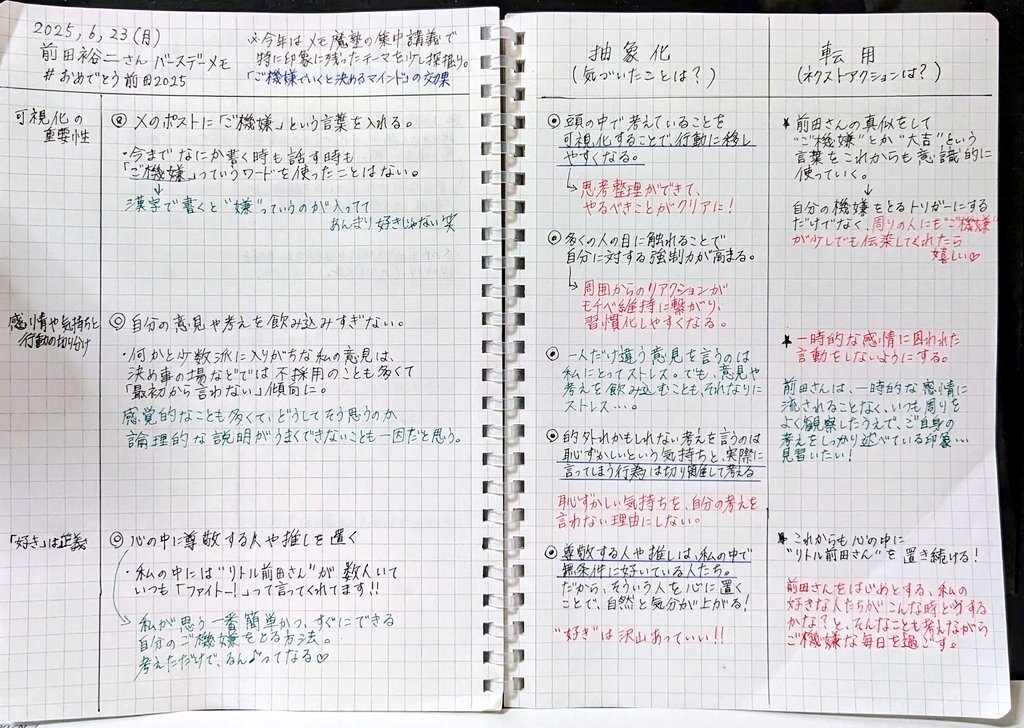 2025,6,23(月)
前田裕二さん バースデーメモ
#おめでとう前田2025
※今年はメモ魔塾の集中講義で
特に印象に残ったテーマを少し深掘り。
「ご機嫌でいくと決めるマインド」の効果
可視化の
重要性
◎ Xのポストに「ご機嫌」という言葉を入れる。
・今までなにか書く時も話す時も
「ご機嫌」っていうワードを使ったことはない。
↓
漢字で書くと"嫌"っていうのが入ってて
あんまり好きじゃない笑
感情や気持ちと
行動の切り分け
◎ 自分の意見や考えを飲み込みすぎない。
・何かと少数派に入りがちな私の意見は、
決め事の場などでは不採用のことも多くて
「最初から言わない」傾向に。
感覚的なことも多くて、どうしてそう思うのか
論理的な説明がうまくできないことも一因だと思う。
「好き」は正義
◎ 心の中に尊敬する人や推しを置く
・私の中には"リトル前田さん"が数人いて
いつも「ファイトー!」って言ってくれてます!!
私が思う一番簡単かつ、すぐにできる
自分のご機嫌をとる方法。
考えただけで、るん♪ってなる♡
抽象化
(気づいたことは?)
◎ 頭の中で考えていることを
可視化することで、行動に移し
やすくなる。
↳ 思考整理ができて、
やるべきことがクリアに!
◎ 多くの人の目に触れることで
自分に対する強制力が高まる。
↳ 周囲からのリアクションが
モチベ維持に繋がり、
習慣化しやすくなる。
◎ 一人だけ違う意見を言うのは
私にとってストレス。でも、意見や
考えを飲み込むことも、それなりに
ストレス…。
◎ 的外れかもしれない考えを言うのは
恥ずかしいという気持ちと、実際に
言ってしまう行為は切り離して考える
恥ずかしい気持ちを、自分の考えを
言わない理由にしない。
◎ 尊敬する人や推しは、私の中で
無条件に好いている人たち。
だから、そういう人を心に置く
ことで、自然と気分が上がる!
"好き"は沢山あっていい!!
転用
(ネクストアクションは?)
★ 前田さんの真似をして
"ご機嫌"とか"大吉"という
言葉をこれからも意識的に
使っていく。
↓
自分の機嫌をとるトリガーにする
だけでなく、周りの人にも"ご機嫌"
が少しでも伝染してくれたら
嬉しい♡
★ 一時的な感情に囚われた
言動をしないようにする。
前田さんは、一時的な感情に
流されることなく、いつも周りを
よく観察したうえで、ご自身の
考えをしっかり述べている印象…
見習いたい!
★ これからも心の中に
"リトル前田さん"を置き続ける!
前田さんをはじめとする、私の
好きな人たちがこんな時どうする
かな?と、そんなことも考えながら
ご機嫌な毎日を過ごす。